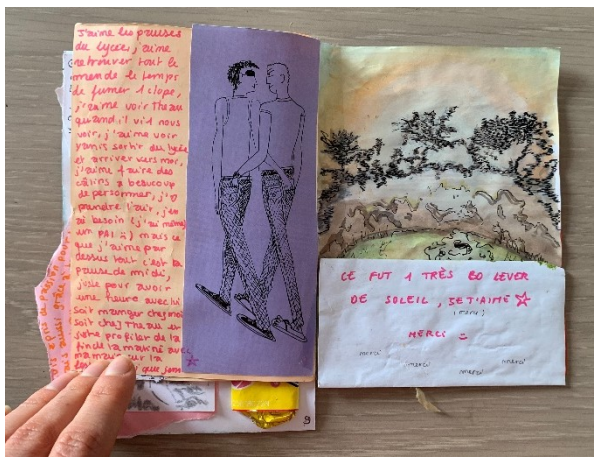 J'aime les pauses
du lycée, j'aime
retrouver tout le
monde le temps
de fumer 1 clope,
j'aime voir Theau
quand il vi1 nous
voir, j'aime voir
Yanis sortir du lycée
et arriver vers moi,
j'aime faire des
câlins a beaucoup
de personnes,
prendre l'air, j'en
ai besoin (j'ai même
un PAI ;) mais ce
que j'aime par
dessus tout c'est la
pause de midi,
juste pour avoir
une heure avec lui
soit manger chez moi
soit chez Theau et
profiter de la
fin de la matiné avec
maman sur la
que
CE FUT 1 TRÈS BO LEVER
DE SOLEIL, JE T'AIME ☆
MERCI
merci
merci
merci
merci
9